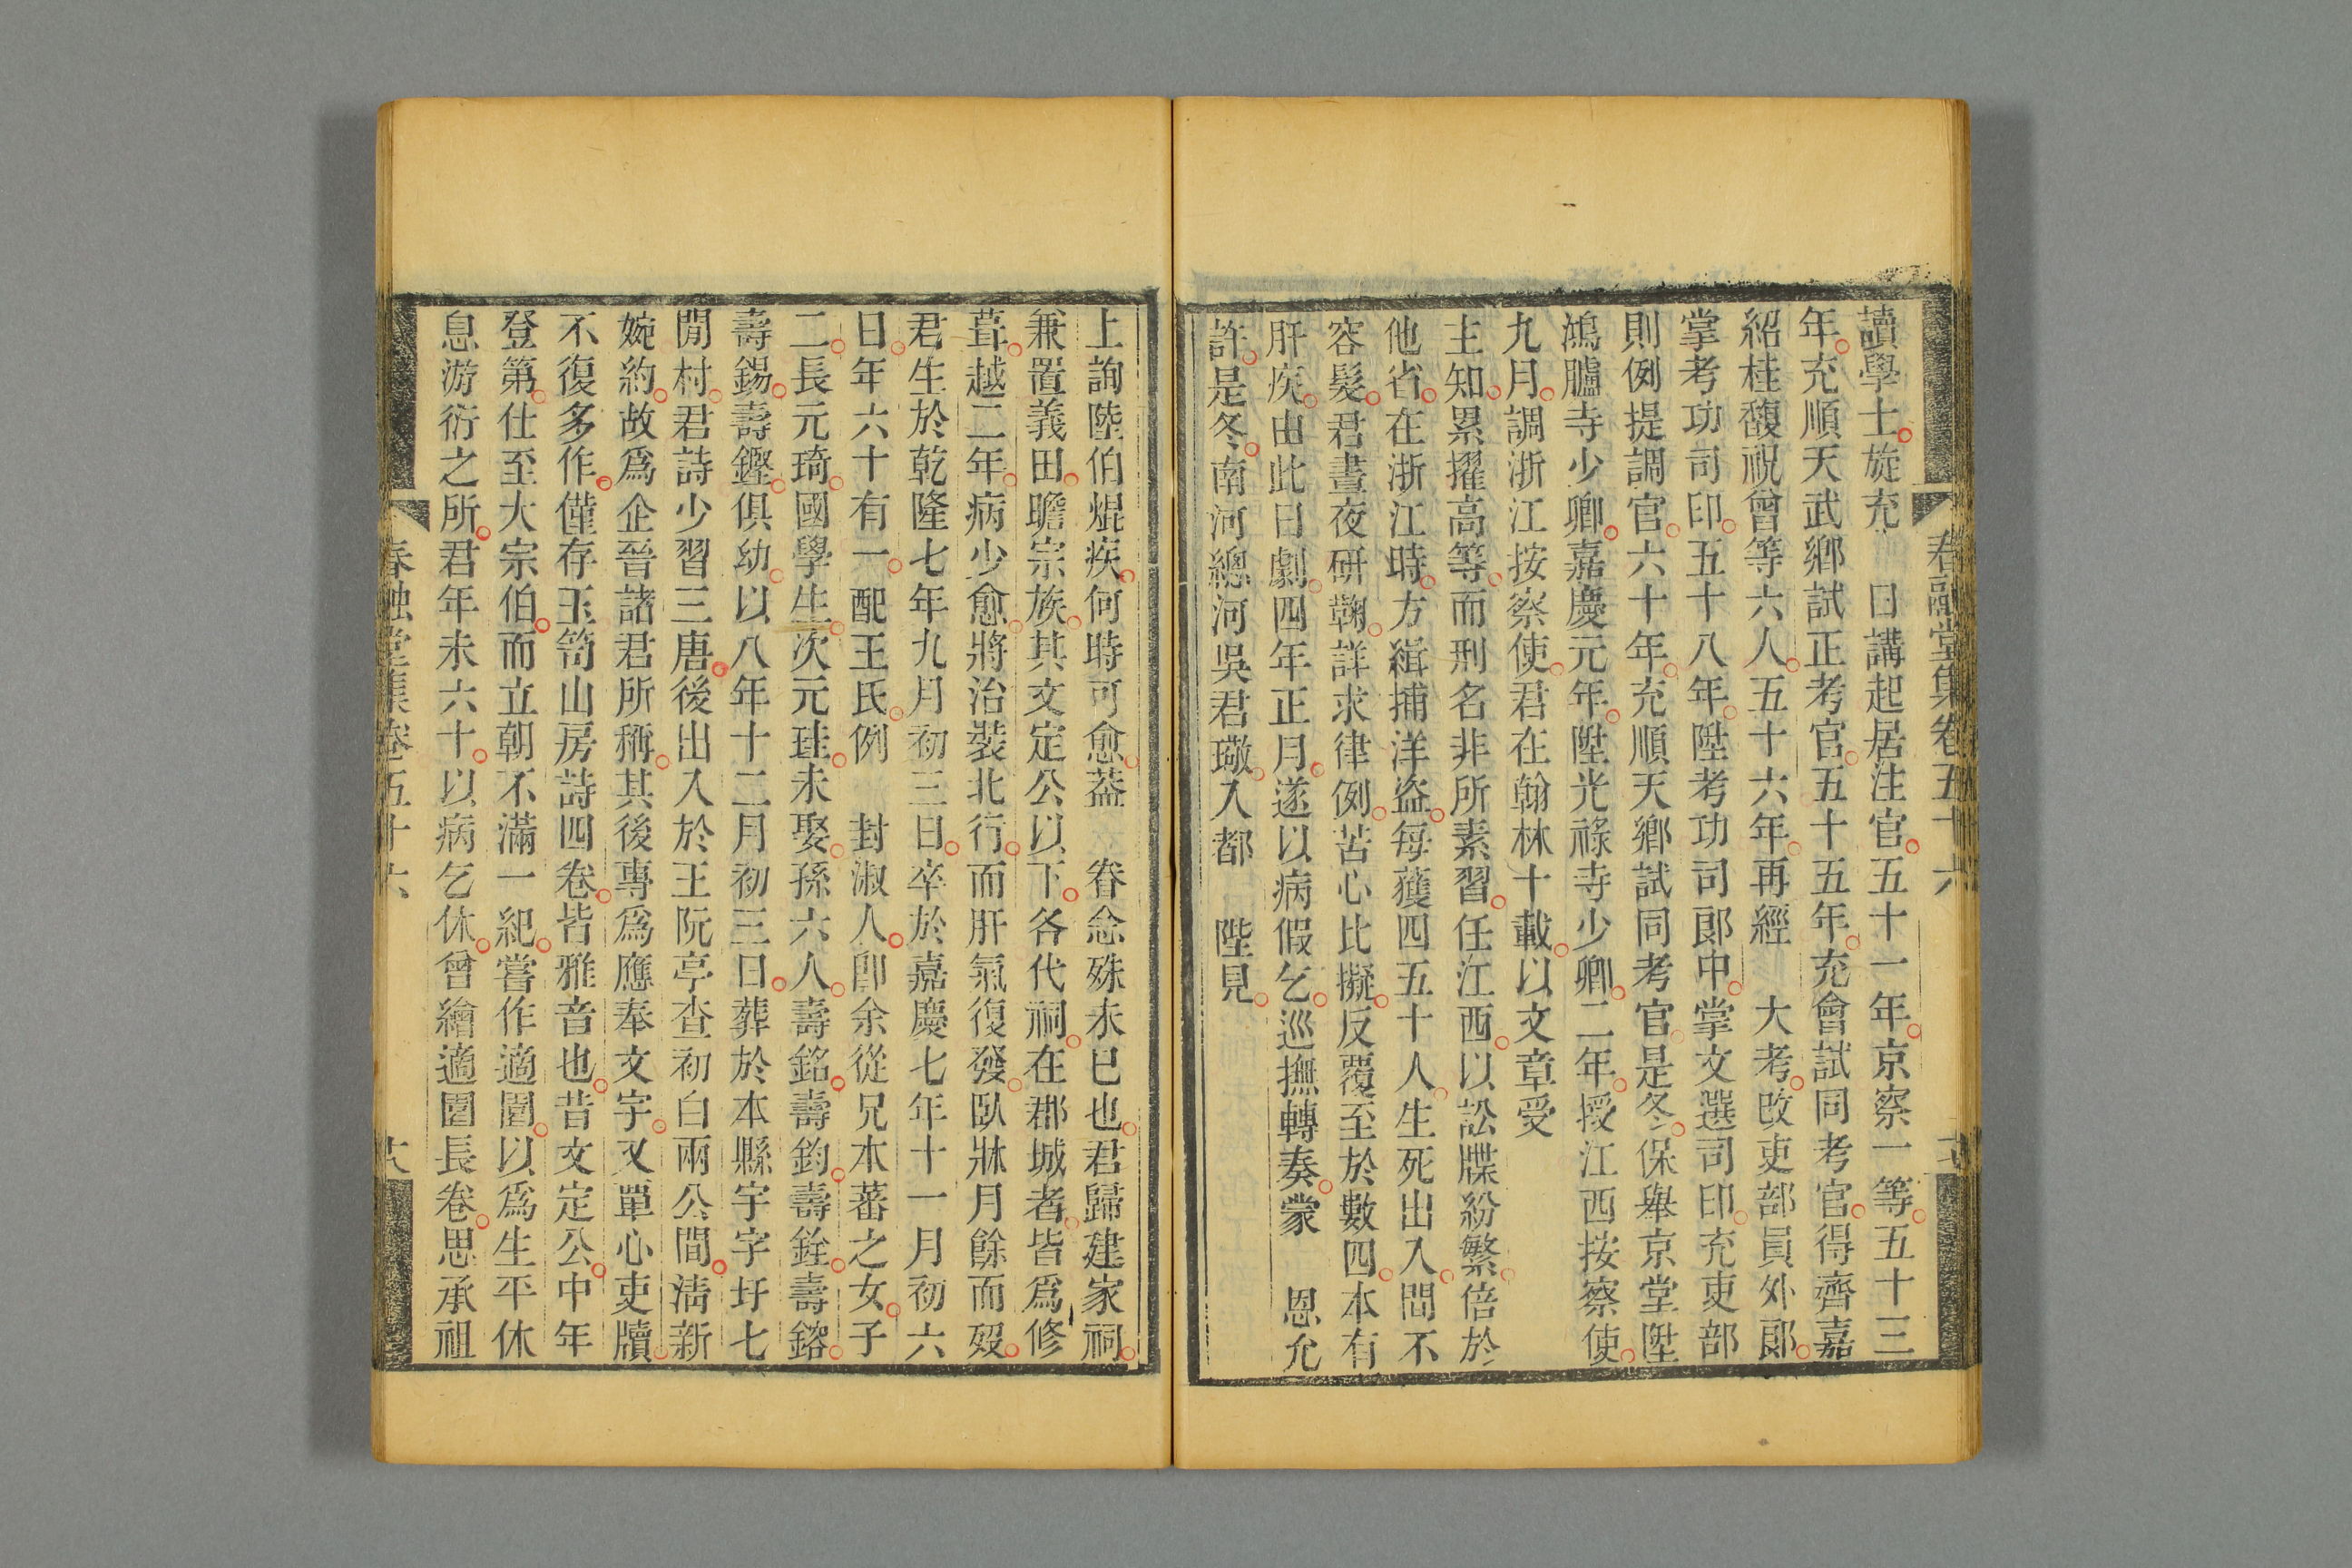 春融堂集卷五十六
讀學士旋充 日講起居注官五十一年京察一等五十三
年充順天武鄉試正考官五十五年充會試同考官得齊嘉
紹桂馥祝曾等六人五十六年再經 大考改吏部員外郎
掌考功司印五十八年陞考功司郎中掌文選司印充吏部
則例提調官六十年充順天鄉試同考官是冬保舉京堂陞
鴻臚寺少卿嘉慶元年陞光祿寺少卿二年授江西按察使
九月調浙江按察使君在翰林十載以文章受
主知累擢高等而刑名非所素習任江西以訟牒紛繁倍於
他省在浙江時方緝捕洋盜每獲四五十人生死出入間不
容髮君晝夜研鞫詳求律例苦心比擬反覆至於數四本有
肝疾由此日劇四年正月遂以病假乞巡撫轉奏蒙 恩允
許是冬南河總河吳君璥入都 陛見
上詢陸伯焜疾何時可愈葢 眷念殊未已也君歸建家祠
兼置義田贍宗族其文定公以下各代祠在郡城者皆爲修
葺越二年病少愈將治裝北行而肝氣復發臥牀月餘而歿
君生於乾隆七年九月初三日卒於嘉慶七年十一月初六
日年六十有一配王氏例 封淑人卽余從兄本蕃之女子
二長元琦國學生次元珪未娶孫六人壽銘壽鈞壽銓壽鎔
壽錫壽鏗俱幼以八年十二月初三日葬於本縣宇字圩七
閒村君詩少習三唐後出入於王阮亭查初白兩公間淸新
婉約故爲企晉諸君所稱其後專爲應奉文字又單心吏牘
不復多作僅存玉笥山房詩四卷皆雅音也昔文定公中年
登第仕至大宗伯而立朝不滿一紀嘗作適園以爲生平休
息游衍之所君年未六十以病乞休曾繪適園長卷思承祖
春融堂集卷五十六